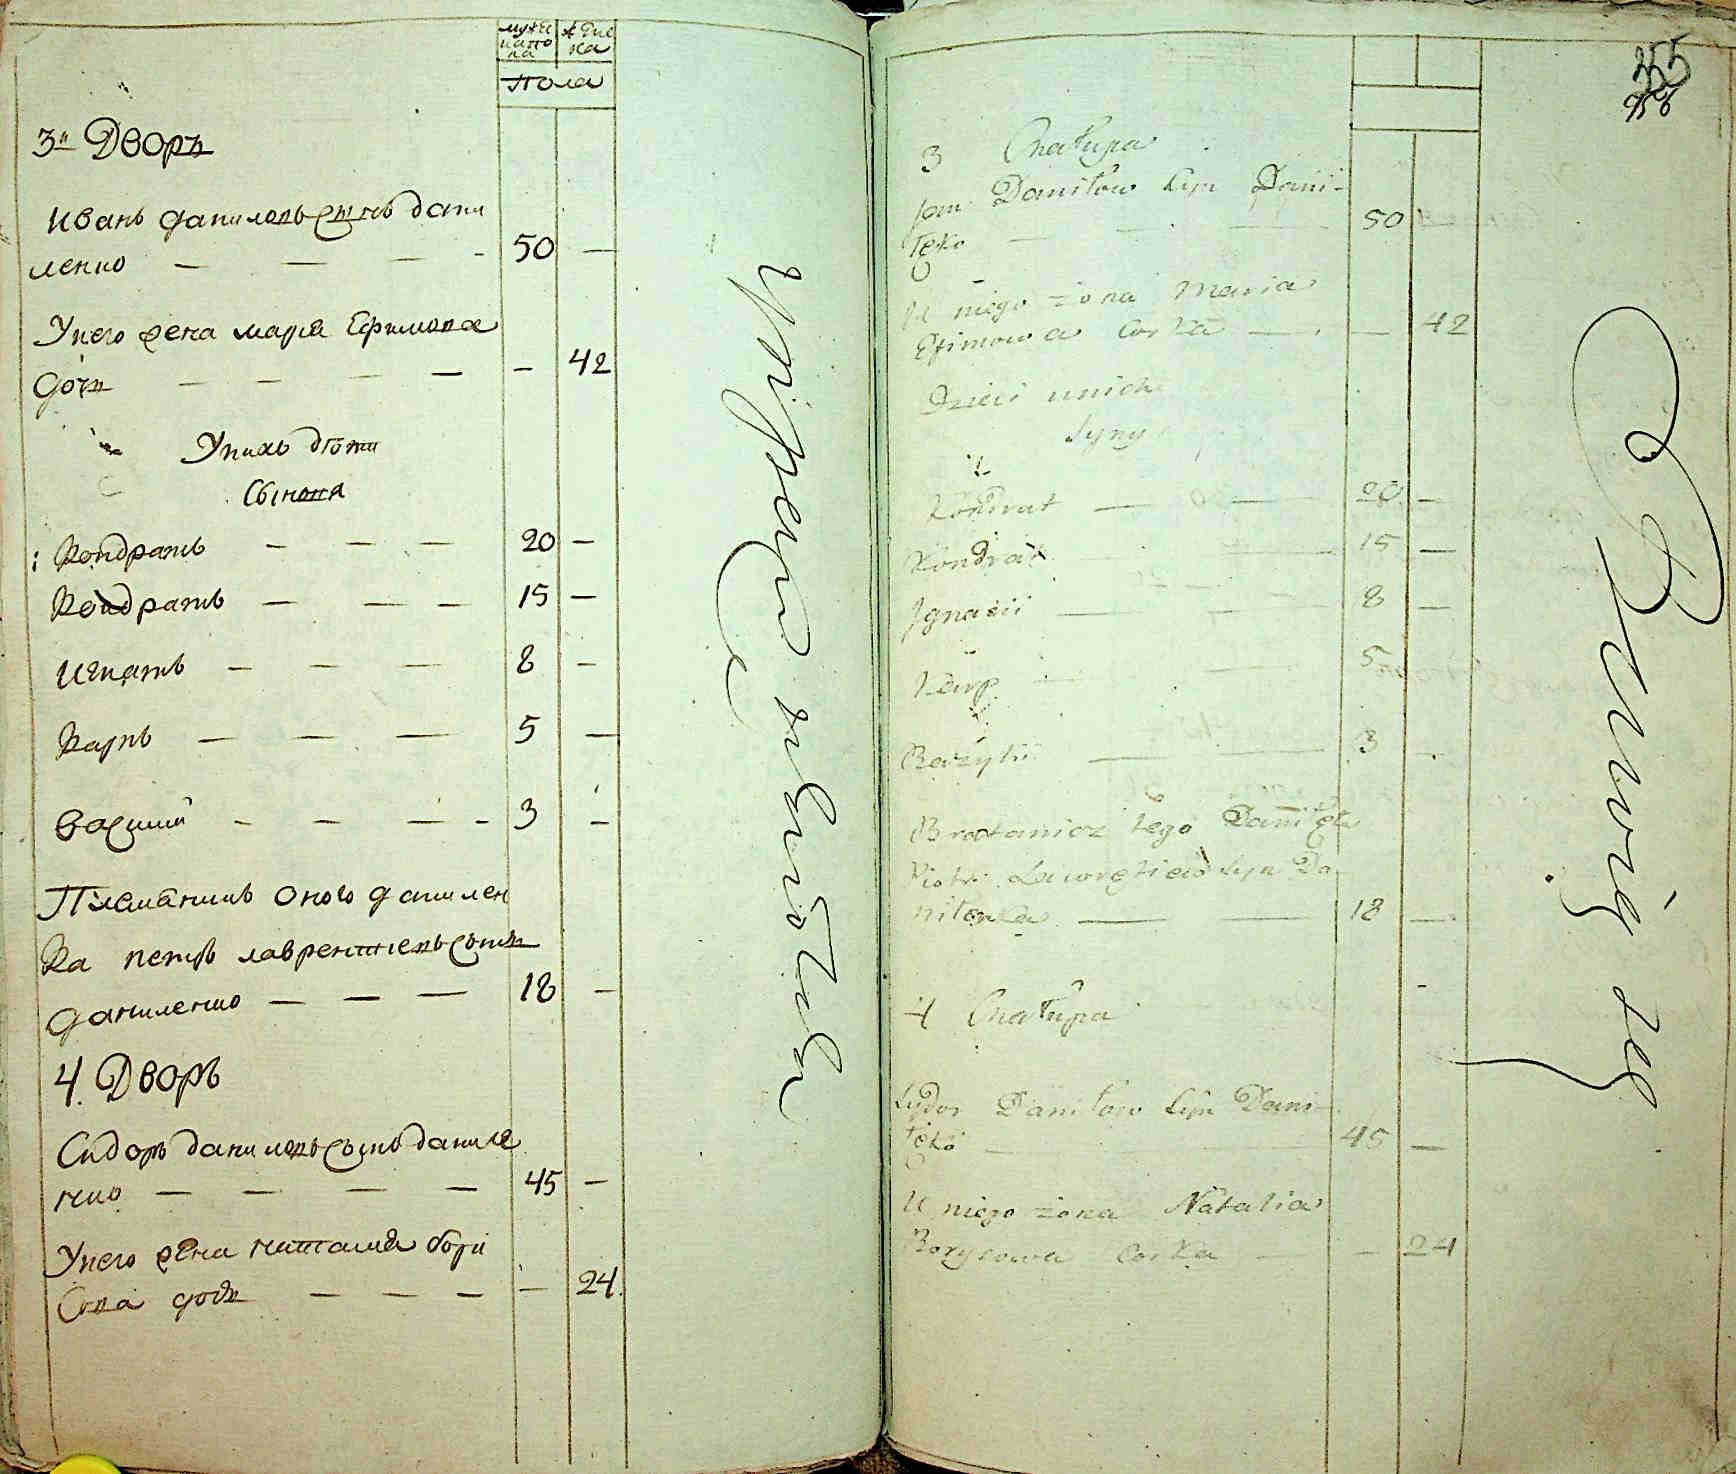 мужеска го
женска
Пола
3й Дворъ
Иванъ даниловъ сынъ дани
ленко — — — - 50 —
У него жена мария Ефимова
дочь — — — — - 42
У нихъ дѣти
Сынова
Кондратъ - — — 20 —
Кондратъ — — — 15 —
Игнатъ — — — 8 —
Карпъ — — — 5 —
Василий - — — - 3 —
Племянникъ оного данилен
ка петръ лаврентиевъ сынъ
даниленко — — — 18 —
4. Дворъ
Сидоръ даниловъ сынъ даниле
нко — — — — 45 —
У него жена наталия бори
сова дочь — — — — 24.
255
3 Chałupa
Jan Daniłow syn Dani-
łęko — — — 50 —
U niego żona Maria
Efimowa Corka — — — 42
Dzieci u nich
Syny
Kondrat — — 20 —
Kondrat — — 15 —
Ignacii — — 8 —
Karp — — 5
Bazylii — — 3 -
Bratanicz tego Daniłęka
Piotr Lawrętiew syn Da
niłęka — — 18 —
4 Chałupa
Sydor Daniłow syn Dani-
łęko — 45 —
U niego żona Natalia
Borysowa Corka — — 24